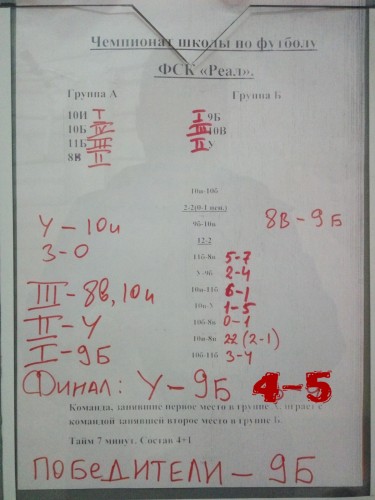 Чемпионат школы по футболу
ФСК «Реал».
Группа А Группа Б
10И I I 9Б
10Б IV III 10В
11Б III II У
8В II
10и-10б
2-2(0-1 пен.)
У - 10и 9б-10в 8В - 9Б
3-0 12-2
11б-8в 5-7
У-9б 2-4
10и-11б 6-1
III - 8в, 10и 1-5
II - У 10б-8в 0-1
I - 9Б 10и-8в 22 (2-1)
10б-11б 3-4
Финал: У - 9Б 4-5
Команда, занявшие первое место в группе А, играет с
командой занявшей второе место в группе Б.
Тайм 7 минут. Состав 4+1
ПОБЕДИТЕЛИ - 9Б